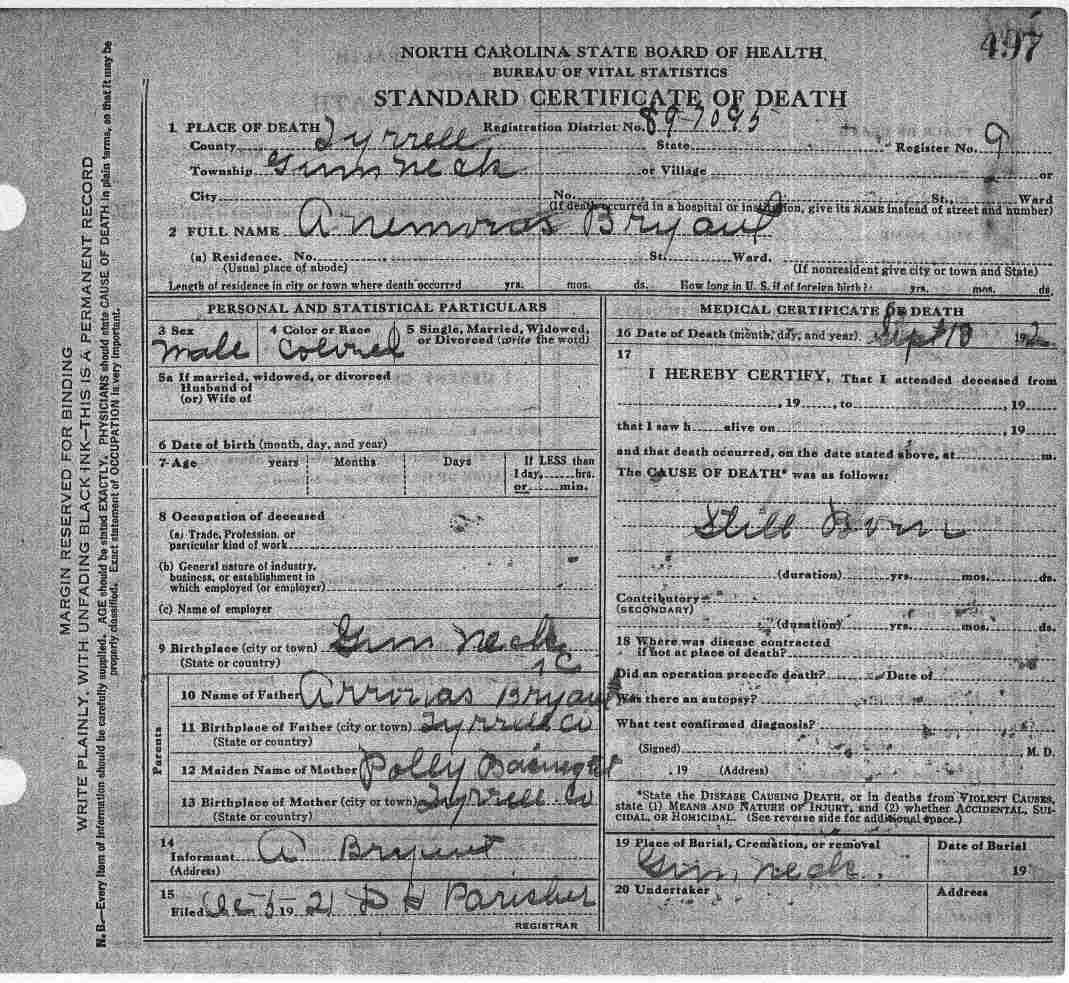 497
NORTH CAROLINA STATE BOARD OF HEALTH
BUREAU OF VITAL STATISTICS
STANDARD CERTIFICATE OF DEATH
1 PLACE OF DEATH Registration District No. 89-7095
County Tyrrell State Register No. 9
Township Gum Neck or Village or
City No. St., Ward
(If death occurred in a hospital or institution, give its NAME instead of street and number)
2 FULL NAME Bryant
(a) Residence. No. St. Ward.
(Usual place of abode) (If nonresident give city or town and State)
Length of residence in city or town where death occurred yrs. mos. ds. How long in U. S. if of foreign birth? yrs. mos. ds.
PERSONAL AND STATISTICAL PARTICULARS
3 Sex 4 Color or Race 5 Single, Married, Widowed,
or Divorced (write the word)
Male Colored
5a If married, widowed, or divorced
Husband of
(or) Wife of
6 Date of birth (month, day, and year)
7 Age years Months Days If LESS than
1 day, hrs.
or min.
8 Occupation of deceased
(a) Trade, Profession, or
particular kind of work
(b) General nature of industry,
business, or establishment in
which employed (or employer)
(c) Name of employer
9 Birthplace (city or town) Gum Neck
(State or country) NC
Parents
10 Name of Father Bryant
11 Birthplace of Father (city or town) Tyrrell Co
(State or country)
12 Maiden Name of Mother Polly
13 Birthplace of Mother (city or town) Tyrrell Co
(State or country)
14
Informant A Bryant
(Address)
15
Filed 5-1921 D H Parisher
REGISTRAR
MEDICAL CERTIFICATE OF DEATH
16 Date of Death (month, day, and year) Sept 192
17
I HEREBY CERTIFY, That I attended deceased from
, 19 , to , 19
that I saw h alive on , 19
and that death occurred, on the date stated above, at m.
The CAUSE OF DEATH* was as follows:
Still Born
(duration) yrs. mos. ds.
Contributory
(SECONDARY)
(duration) yrs. mos. ds.
18 Where was disease contracted
if not at place of death?
Did an operation precede death? Date of
Was there an autopsy?
What test confirmed diagnosis?
(Signed) , M. D.
, 19 (Address)
*State the DISEASE CAUSING DEATH, or in deaths from VIOLENT CAUSES,
state (1) MEANS AND NATURE OF INJURY, and (2) whether ACCIDENTAL, SUI-
CIDAL, OR HOMICIDAL. (See reverse side for additional space.)
19 Place of Burial, Cremation, or removal Date of Burial
Gum Neck 19
20 Undertaker Address
MARGIN RESERVED FOR BINDING
WRITE PLAINLY, WITH UNFADING BLACK INK—THIS IS A PERMANENT RECORD
N. B.—Every item of information should be carefully supplied. AGE should be stated EXACTLY. PHYSICIANS should state CAUSE OF DEATH in plain terms, so that it may be
properly classified. Exact statement of OCCUPATION is very important.